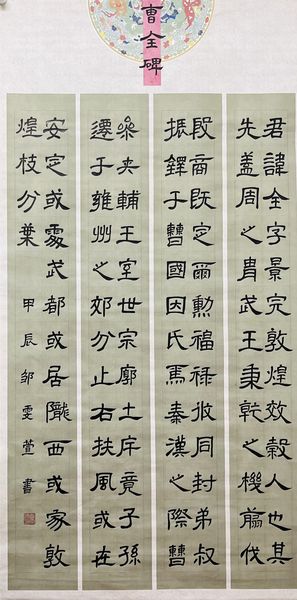 曹全碑
君諱全字景完敦煌效穀人也其
先蓋周之胄武王秉乾之機翦伐
殷商既定爾勳福祿攸同封弟叔
振鐸于曹國因氏焉秦漢之際曹
參夾輔王室世宗廓土斥竟子孫
遷于雍州之郊分止右扶風或在
安定或處武都或居隴西或家敦
煌枝分葉
甲辰鄒雯萱書